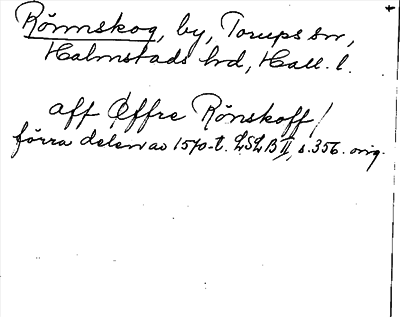 Rönnskog, by, Torups sn,
Halmstads hd, Hall. l.
aff Øffre Rönskoff /
förra delen av 1570-t. LSLB II, s. 356. orig.